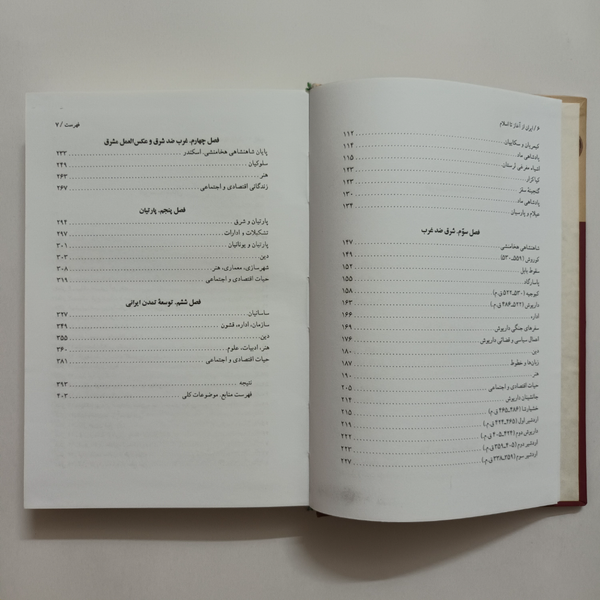 ۶ / ایران از آغاز تا اسلام
کیمریان و سکاییان ۱۱۲
پادشاهی ماد ۱۱۴
اشیاء مفرغی لرستان ۱۱۵
کیاکزار ۱۲۳
گنجینهٔ سقز ۱۲۳
پادشاهی ماد ۱۳۰
عیلام و پارسیان ۱۳۴
فصل سوّم. شرق ضد غرب
شاهنشاهی هخامنشی ۱۴۷
کوروش (۵۵۹ـ۵۳۰) ۱۴۹
سقوط بابل ۱۵۲
پاسارگاد ۱۵۵
کبوجیه (۵۳۰ـ۵۲۲ ق.م.) ۱۵۸
داریوش (۵۲۲ـ۴۸۶ ق.م.) ۱۶۳
اداره ۱۶۶
سفرهای جنگی داریوش ۱۶۹
اعمال سیاسی و قضائی داریوش ۱۷۶
دین ۱۸۰
زبان‌ها و خطوط ۱۸۷
هنر ۱۹۰
حیات اقتصادی و اجتماعی ۲۰۵
جانشینان داریوش ۲۱۴
خشیارشا (۴۸۶ـ۴۶۵ ق.م.) ۲۱۵
اردشیر اول (۴۶۵ـ۴۲۴ ق.م.) ۲۱۹
داریوش دوم (۴۲۴ـ۴۰۵ ق.م.) ۲۲۲
اردشیر دوم (۴۰۵ـ۳۵۹ ق.م.) ۲۲۳
اردشیر سوم (۳۵۹ـ۳۳۸ ق.م.) ۲۲۷
فهرست / ۷
فصل چهارم. غرب ضد شرق و عکس‌العمل مشرق
پایان شاهنشاهی هخامنشی. اسکندر ۲۳۳
سلوکیان ۲۴۹
هنر ۲۶۳
زندگانی اقتصادی و اجتماعی ۲۶۷
فصل پنجم. پارتیان
پارتیان و شرق ۲۹۴
تشکیلات و ادارات ۲۹۷
پارتیان و یونانیان ۳۰۱
دین ۳۰۳
شهرسازی، معماری، هنر ۳۰۸
حیات اقتصادی و اجتماعی ۳۱۹
فصل ششم. توسعهٔ تمدن ایرانی
ساسانیان ۳۲۷
سازمان، اداره، قشون ۳۴۹
دین ۳۵۵
هنر، ادبیات، علوم ۳۶۰
حیات اقتصادی و اجتماعی ۳۸۱
نتیجه ۳۹۳
فهرست منابع. موضوعات کلی ۴۰۳